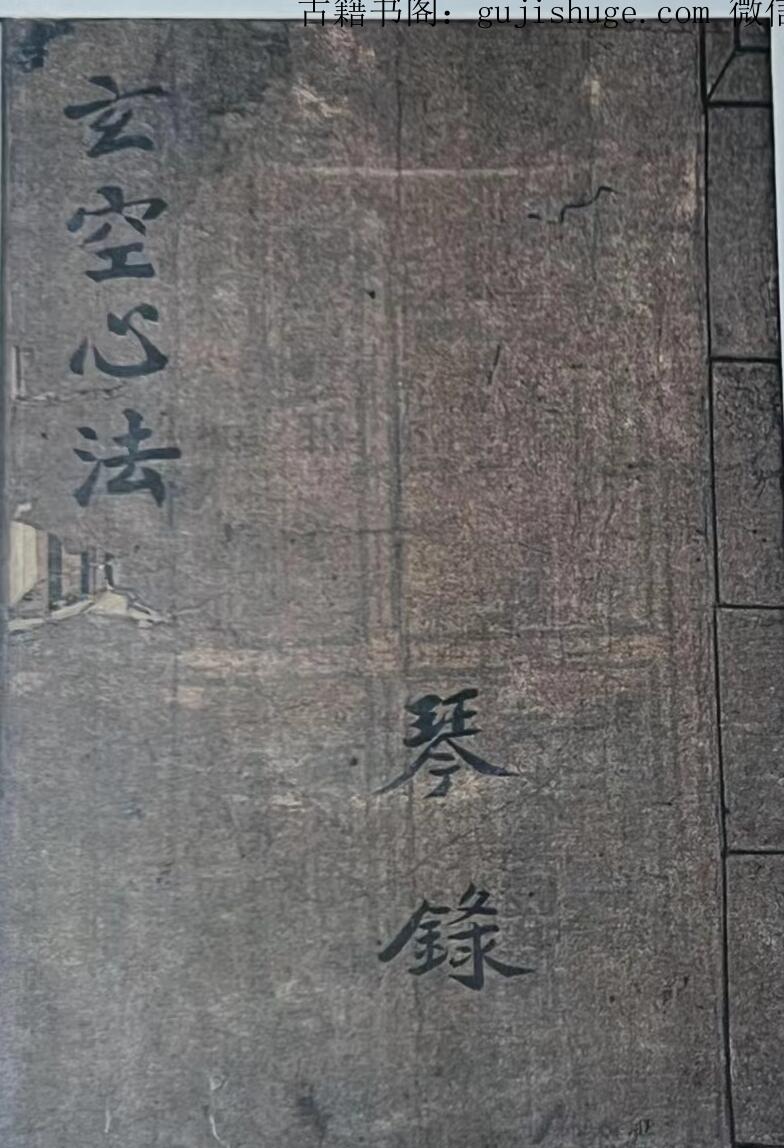 古籍书阁：gujishuge.com 微信
玄空心法
琴錄